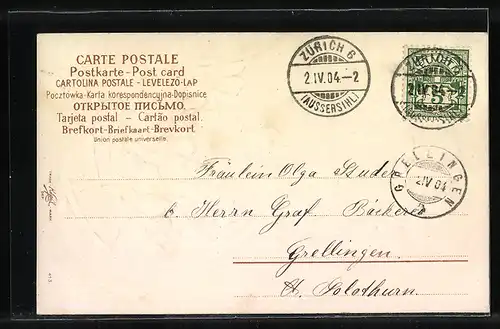 CARTE POSTALE
Postkarte - Post card
CARTOLINA POSTALE - LEVELEZO-LAP
Pocztówka-Karta korespondencyjna-Dopisnice
ОТКРЫТОЕ ПИСЬМО.
Tarjeta postal - Cartão postal.
Brefkort-Briefkaart-Brevkort.
Union postale universelle.
ZÜRICH 6
2.IV.04.-2
(AUSSERSIHL)
ZÜRICH 6
2.IV.04.-2
(AUSSERSIHL)
5
GRELLINGEN
2 IV 04
Fräulein Olga Studer
b Herrn Graf Bäckerei
Grellingen
Kt. Solothurn.